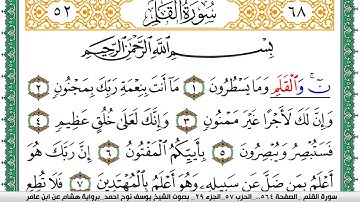 ٥٢ سُورَةُ القَلَمِ ٦٨
بِسْمِ اللَّهِ الرَّحْمَنِ الرَّحِيمِ
نٓ ۚ وَالْقَلَمِ وَمَا يَسْطُرُونَ ١ مَا أَنتَ بِنِعْمَةِ رَبِّكَ بِمَجْنُونٍ ٢
وَإِنَّ لَكَ لَأَجْرًا غَيْرَ مَمْنُونٍ ٣ وَإِنَّكَ لَعَلَىٰ خُلُقٍ عَظِيمٍ ٤
فَسَتُبْصِرُ وَيُبْصِرُونَ ٥ بِأَييِّكُمُ الْمَفْتُونُ ٦ إِنَّ رَبَّكَ هُوَ
أَعْلَمُ بِمَن ضَلَّ عَن سَبِيلِهِ وَهُوَ أَعْلَمُ بِالْمُهْتَدِينَ ٧ فَلَا تُطِعِ
سورة القلم الصفحة ٥٦٤ .. الحزب ٥٧ .الجزء ٢٩ . بصوت الشيخ يوسف نوح احمد. برواية هشام عن ابن عامر